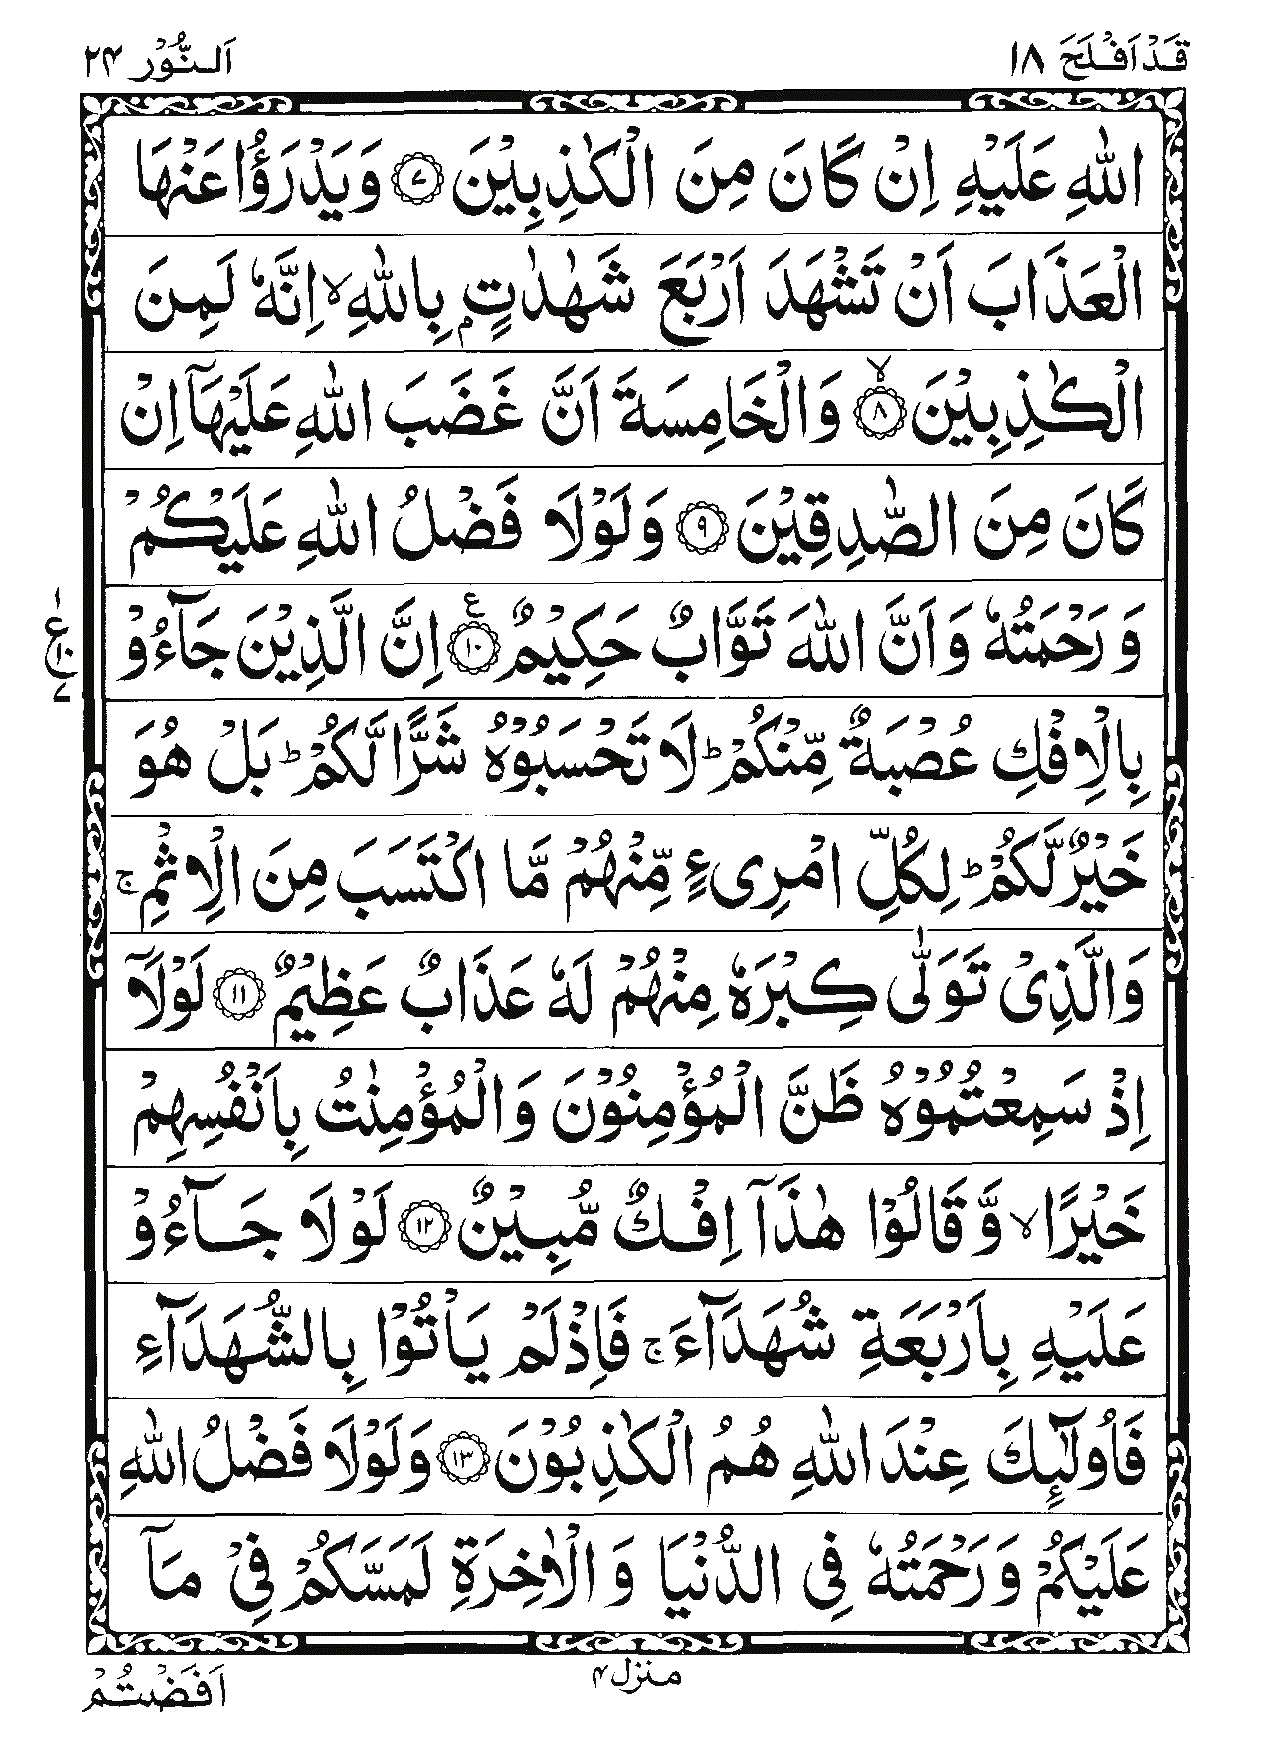 قَدْ اَفْلَحَ ١٨
اَلنُّوْر ٢٤
اللّٰهِ عَلَيْهِ اِنْ كَانَ مِنَ الْكٰذِبِيْنَ ۝٧ وَيَدْرَؤُا عَنْهَا
الْعَذَابَ اَنْ تَشْهَدَ اَرْبَعَ شَهٰدٰتٍۭ بِاللّٰهِ ۙ اِنَّهٗ لَمِنَ
الْكٰذِبِيْنَ ۝٨ۙ وَالْخَامِسَةَ اَنَّ غَضَبَ اللّٰهِ عَلَيْهَاۤ اِنْ
كَانَ مِنَ الصّٰدِقِيْنَ ۝٩ وَلَوْلَا فَضْلُ اللّٰهِ عَلَيْكُمْ
وَ رَحْمَتُهٗ وَاَنَّ اللّٰهَ تَوَّابٌ حَكِيْمٌ ۝١٠ۧ اِنَّ الَّذِيْنَ جَآءُوْ
١
ع
١٠
٧
بِالْاِفْكِ عُصْبَةٌ مِّنْكُمْ ؕ لَا تَحْسَبُوْهُ شَرًّا لَّكُمْ ؕ بَلْ هُوَ
خَيْرٌ لَّكُمْ ؕ لِكُلِّ امْرِیءٍ مِّنْهُمْ مَّا اكْتَسَبَ مِنَ الْاِثْمِ ۚ
وَالَّذِیْ تَوَلّٰی كِبْرَهٗ مِنْهُمْ لَهٗ عَذَابٌ عَظِيْمٌ ۝١١ لَوْلَاۤ
اِذْ سَمِعْتُمُوْهُ ظَنَّ الْمُؤْمِنُوْنَ وَالْمُؤْمِنٰتُ بِاَنْفُسِهِمْ
خَيْرًا ۙ وَّ قَالُوْا هٰذَاۤ اِفْكٌ مُّبِيْنٌ ۝١٢ لَوْلَا جَآءُوْ
عَلَيْهِ بِاَرْبَعَةِ شُهَدَآءَ ۚ فَاِذْ لَمْ يَاْتُوْا بِالشُّهَدَآءِ
فَاُولٰٓئِكَ عِنْدَ اللّٰهِ هُمُ الْكٰذِبُوْنَ ۝١٣ وَلَوْلَا فَضْلُ اللّٰهِ
عَلَيْكُمْ وَرَحْمَتُهٗ فِی الدُّنْيَا وَ الْاٰخِرَةِ لَمَسَّكُمْ فِیْ مَاۤ
منزل ٤
اَفَضْتُمْ